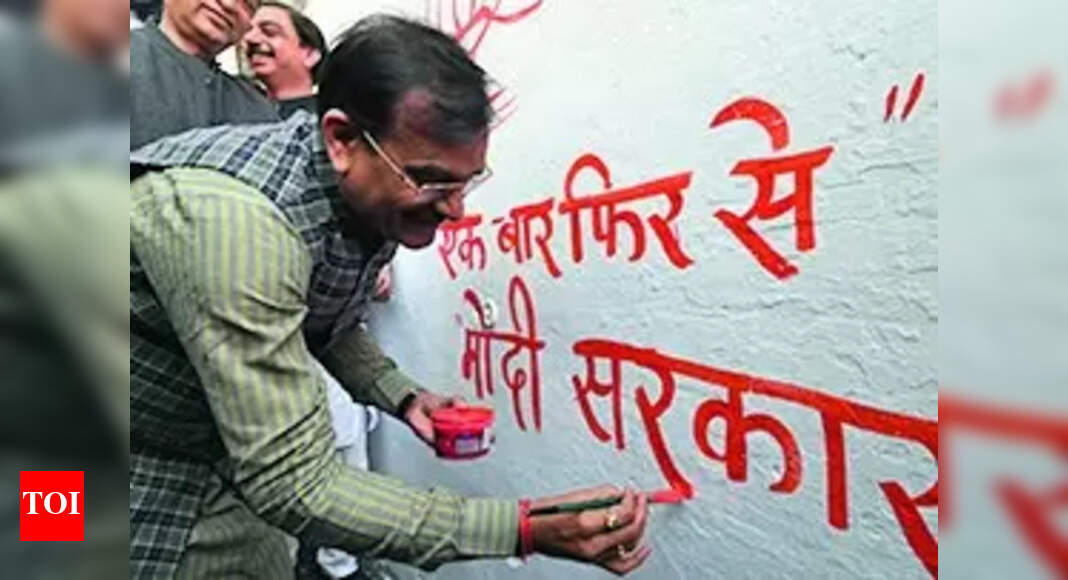 एक बार फिर से"
मोदी सरकार
TOI